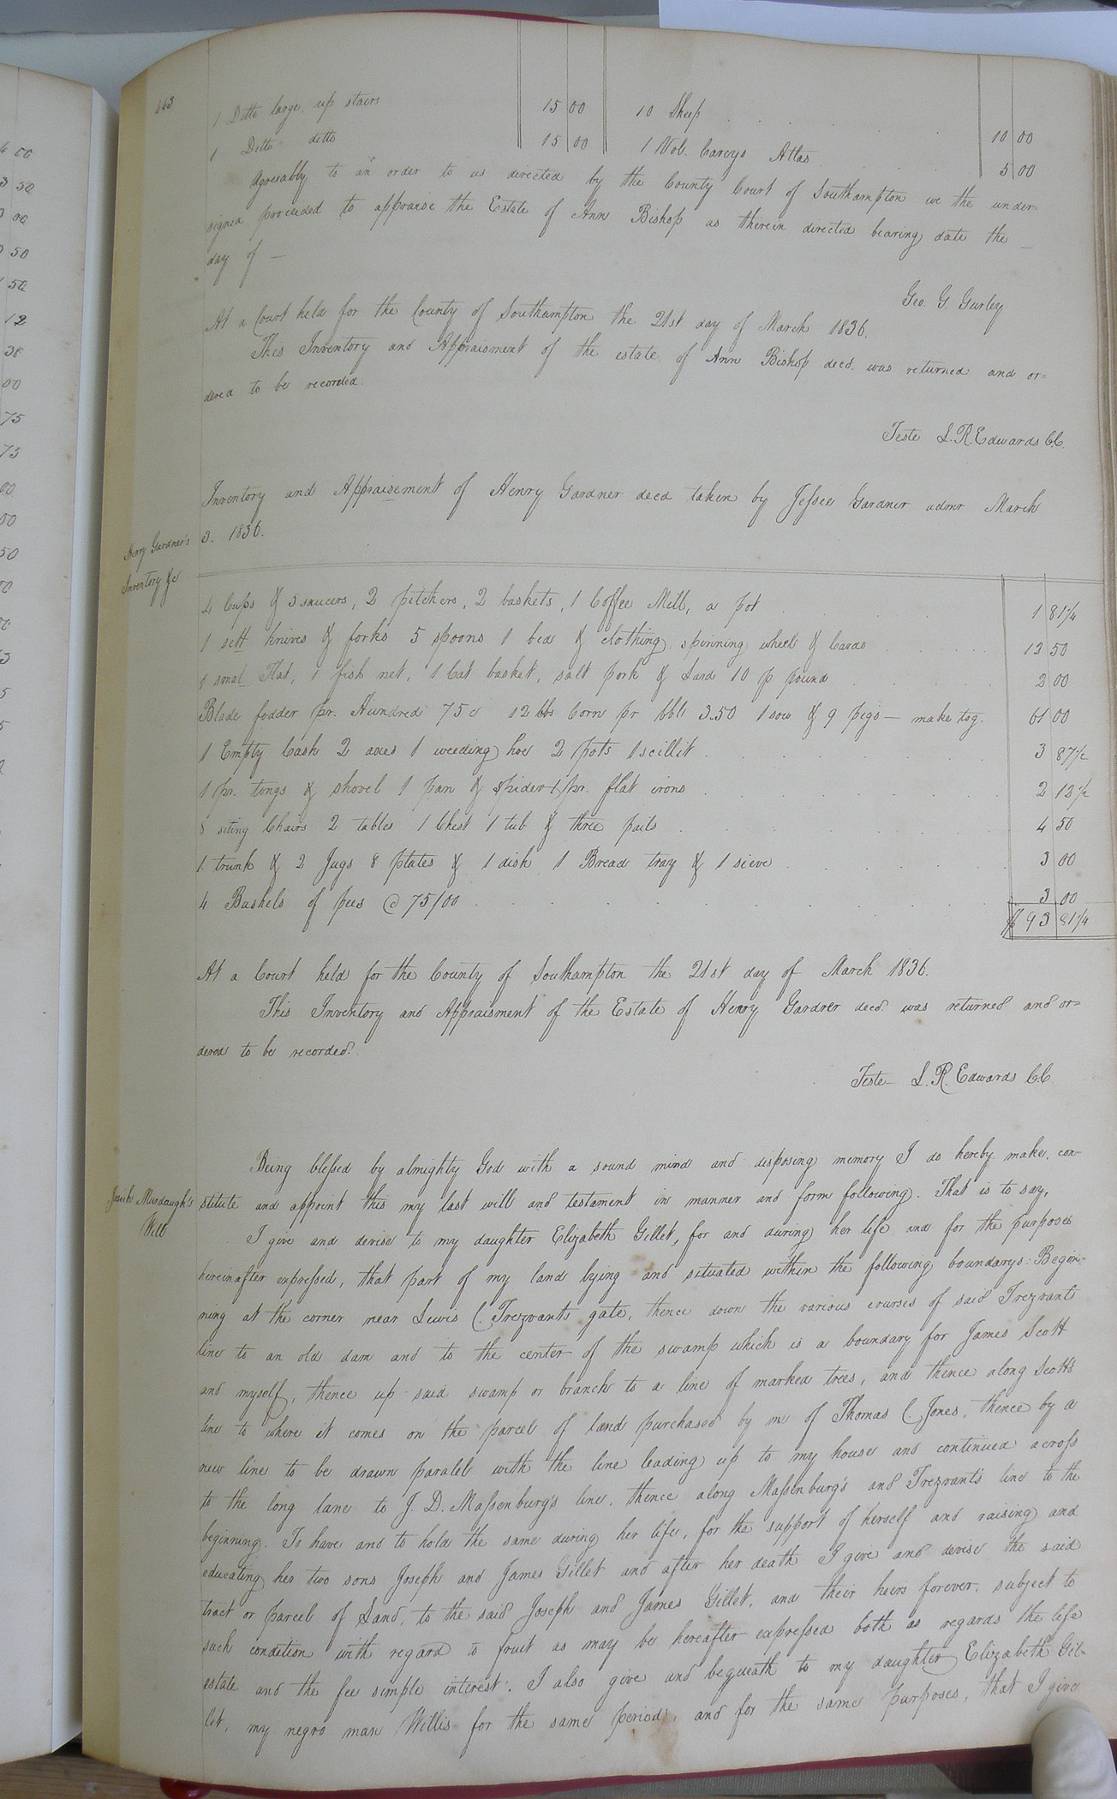 1 Ditto large up stairs 15 00 10 Sheep 10 00
1 Ditto ditto 15 00 1 Vol. Careys Atlas 5 00
Agreeably to an order to us directed by the County Court of Southampton we the under-
signed proceeded to appraise the Estate of Ann Bishop as therein directed bearing date the
day of —
Geo. G Gurley
At a Court held for the County of Southampton the 21st day of March 1836.
This Inventory and Appraisment of the estate of Ann Bishop decd. was returned and or=
dered to be recorded.
Teste L. R Edwards CC.
Inventory and Appraisement of Henry Gardner decd taken by Jessee Gardner admr March
3. 1836.
Henry Gardner's
Inventory &c
4 Cups & 3 saucers, 2 pitchers, 2 baskets, 1 Coffee Mill, a pot 1 81 1/4
1 sett knives & forks 5 spoons 1 bed & clothing, spinning wheel & Cards 12 50
Flat, 1 fish net, 1 Cat basket, salt pork & Lard 10 p pound 2 00
Blade fodder pr. Hundred 75c 12 bbs Corn pr bbl 3.50 1 sow & 9 pigs — make tog. 61 00
1 Empty Cask 2 axes 1 weeding hoe 2 pots 1 scillit 3 87 1/2
1 pr. tongs & shovel 1 pan & spider 1 pr. flat irons 2 12 1/2
8 siting Chairs 2 tables 1 Chest 1 tub & three pails 4 50
1 trunk & 2 Jugs 8 plates & 1 dish 1 Bread tray & 1 sieve 3 00
4 Bushels of pees @ 75/00 3 00
$ 93 81 1/4
At a Court held for the County of Southampton the 21st day of March 1836.
This Inventory and Appraisment of the Estate of Henry Gardner decd was returned and or=
dered to be recorded.
Teste L. R Edwards CC
Being blessed by almighty God with a sound mind and disposing memory I do hereby make, con-
Murdaugh's
Will
stitute and appoint this my last will and testament in manner and form following. That is to say,
I give and devise to my daughter Elizabeth Gillet, for and during her life and for the purposes
hereinafter expressed, that part of my land lying and situated within the following boundarys: Begin-
ning at the corner near Lewis C. Trezvants gate, thence down the various courses of said Trezvants
line to an old dam and to the center of the swamp which is a boundary for James Scott
and myself, thence up said swamp or branch to a line of marked trees, and thence along Scotts
line to where it comes on the parcel of land purchased by me of Thomas C Jones, thence by a
new line to be drawn paralel with the line leading up to my house and continued across
to the long lane to J. D. Massenburg's line, thence along Massenburg's and Trezvant's line to the
beginning. To have and to hold the same during her life, for the support of herself and raising and
educating her two sons Joseph and James Gillet and after her death I give and devise the said
tract or parcel of Land, to the said Joseph and James Gillet, and their heirs forever, subject to
such condition with regard to fruit as may be hereafter expressed both as regards the life
estate and the fee simple interest. I also give and bequeath to my daughter Elizabeth Gil-
let, my negro man Willis for the same period, and for the same purposes, that I give